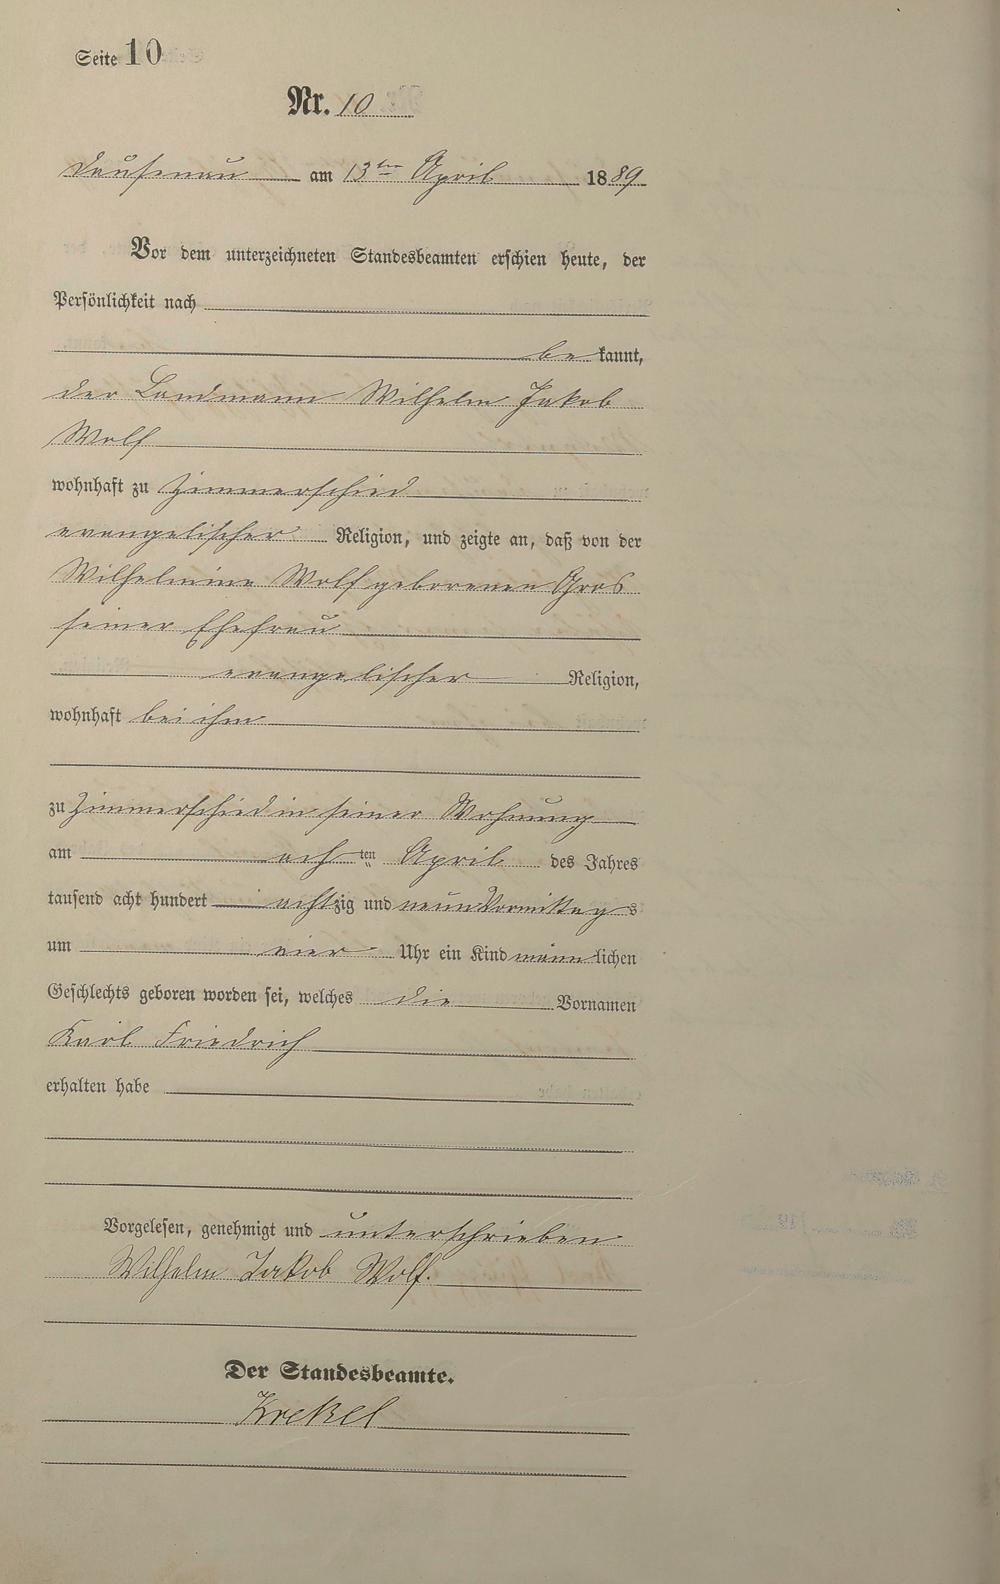 Seite 10
Nr. 10
Dausenau am 13ten April 1889
Vor dem unterzeichneten Standesbeamten erschien heute, der
Persönlichkeit nach
be kannt,
der Landmann Wilhelm Jakob
Wolf
wohnhaft zu Zimmerschied
evangelischer Religion, und zeigte an, daß von der
Wilhelmine Wolf geborenen Gros
seiner Ehefrau
evangelischer Religion,
wohnhaft bei ihm
zu Zimmerschied in seiner Wohnung
am ach ten April des Jahres
tausend acht hundert achtzig und neun Vormittags
um vier Uhr ein Kind männlichen
Geschlechts geboren worden sei, welches die Vornamen
Karl Friedrich
erhalten habe
Vorgelesen, genehmigt und unterschrieben
Wilhelm Jakob Wolf.
Der Standesbeamte.
Krekel